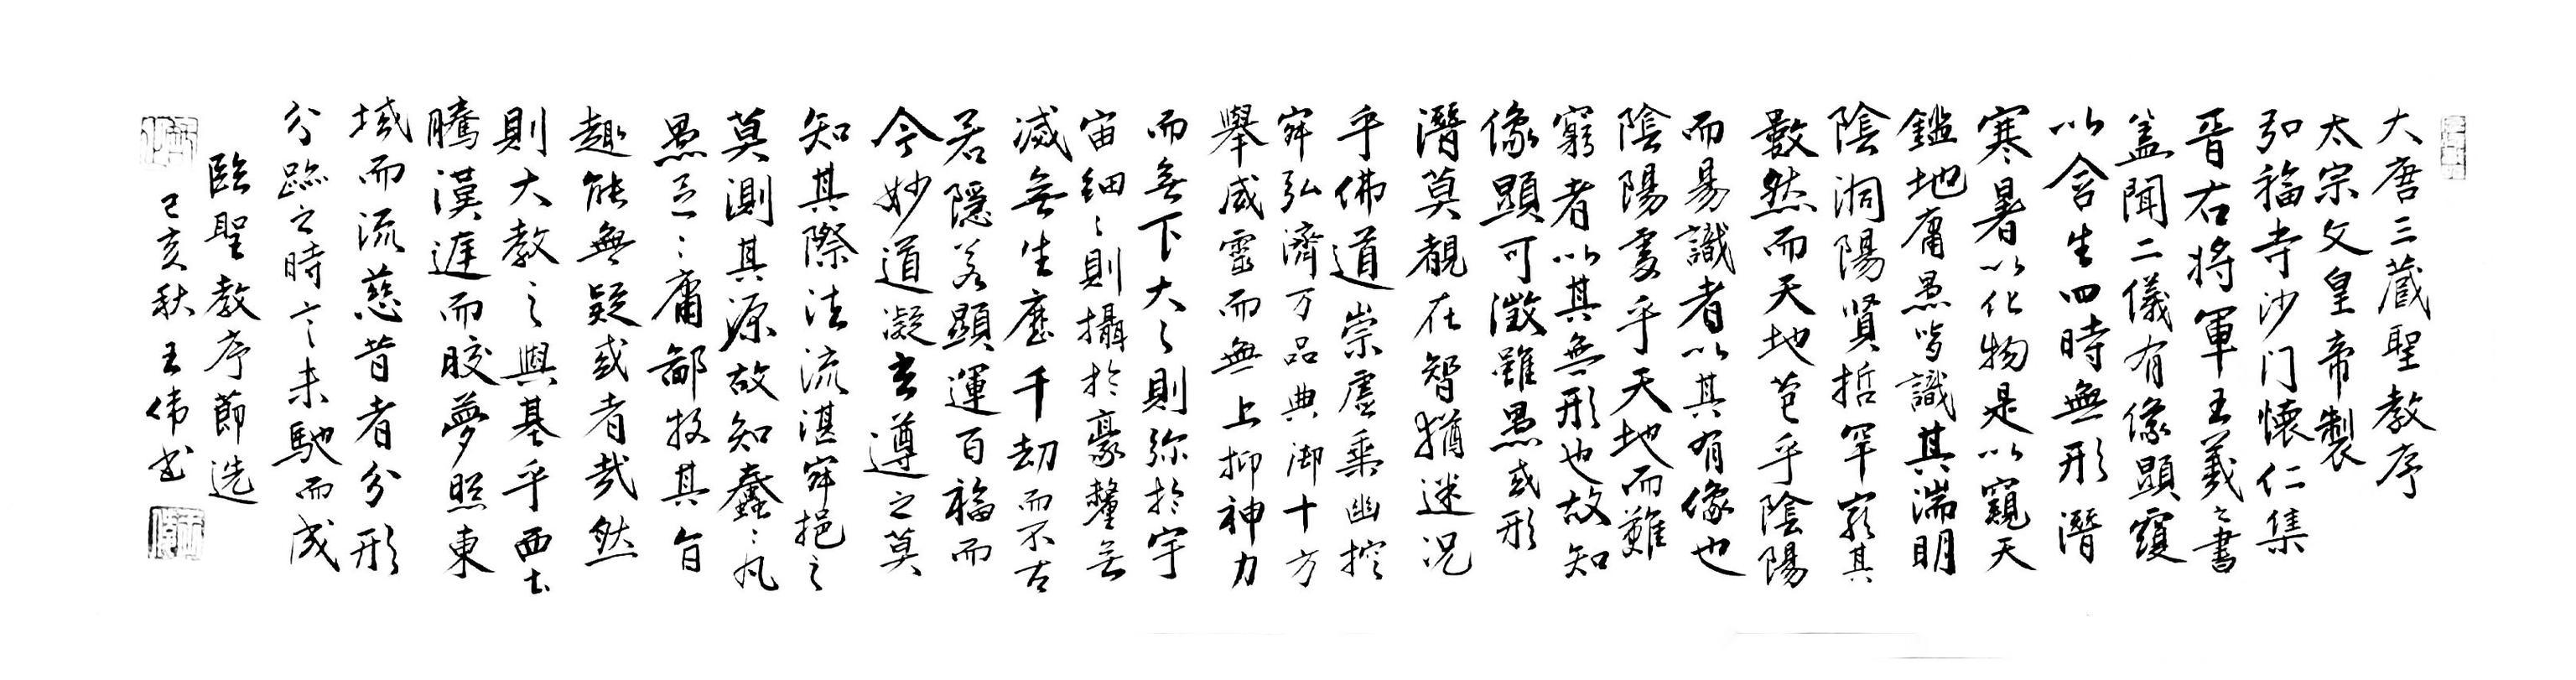 大唐三藏聖教序
太宗文皇帝製
弘福寺沙门懷仁集
晉右将軍王羲之書
盖聞二儀有像顯覆
以含生四時無形潛
寒暑以化物是以窺天
鑑地庸愚皆識其端明
陰洞陽賢哲罕窮其
數然而天地苞乎陰陽
而易識者以其有像也
陰陽處乎天地而難
窮者以其無形也故知
像顯可徵雖愚或形
潛莫覩在智猶迷况
乎佛道崇虛乗幽控
寂弘濟万品典御十方
舉威靈而無上抑神力
而無下大之則弥於宇
宙細之則攝於豪釐无
滅無生歷千劫而不古
若隱若顯運百福而
今妙道凝玄遵之莫
知其際法流湛寂挹之
莫測其源故知蠢〻凡
愚區〻庸鄙投其旨
趣能無疑或者哉然
則大教之興基乎西土
騰漢庭而皎夢照東
域而流慈昔者分形
分跡之時言未馳而成
臨聖教序節选
己亥秋王伟书